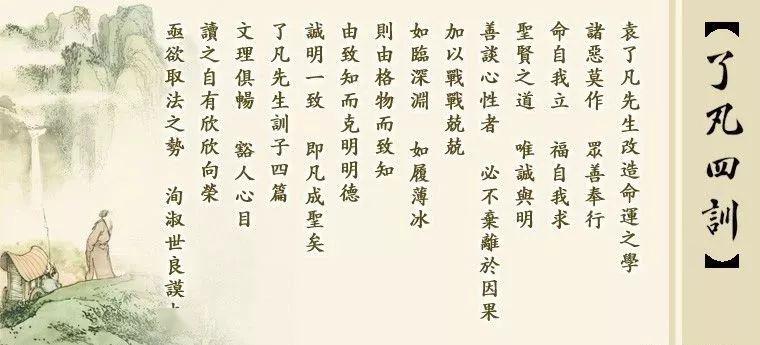 【了凡四訓】
袁了凡先生改造命運之學
諸惡莫作 眾善奉行
命自我立 福自我求
聖賢之道 唯誠與明
善談心性者 必不棄離於因果
加以戰戰兢兢
如臨深淵 如履薄冰
則由格物而致知
由致知而克明明德
誠明一致 即凡成聖矣
了凡先生訓子四篇
文理俱暢 豁人心目
讀之自有欣欣向榮
亟欲取法之勢 洵淑世良謨